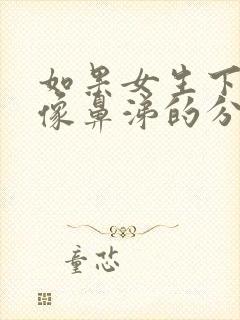 如果女生下
像鼻涕的分
童恐